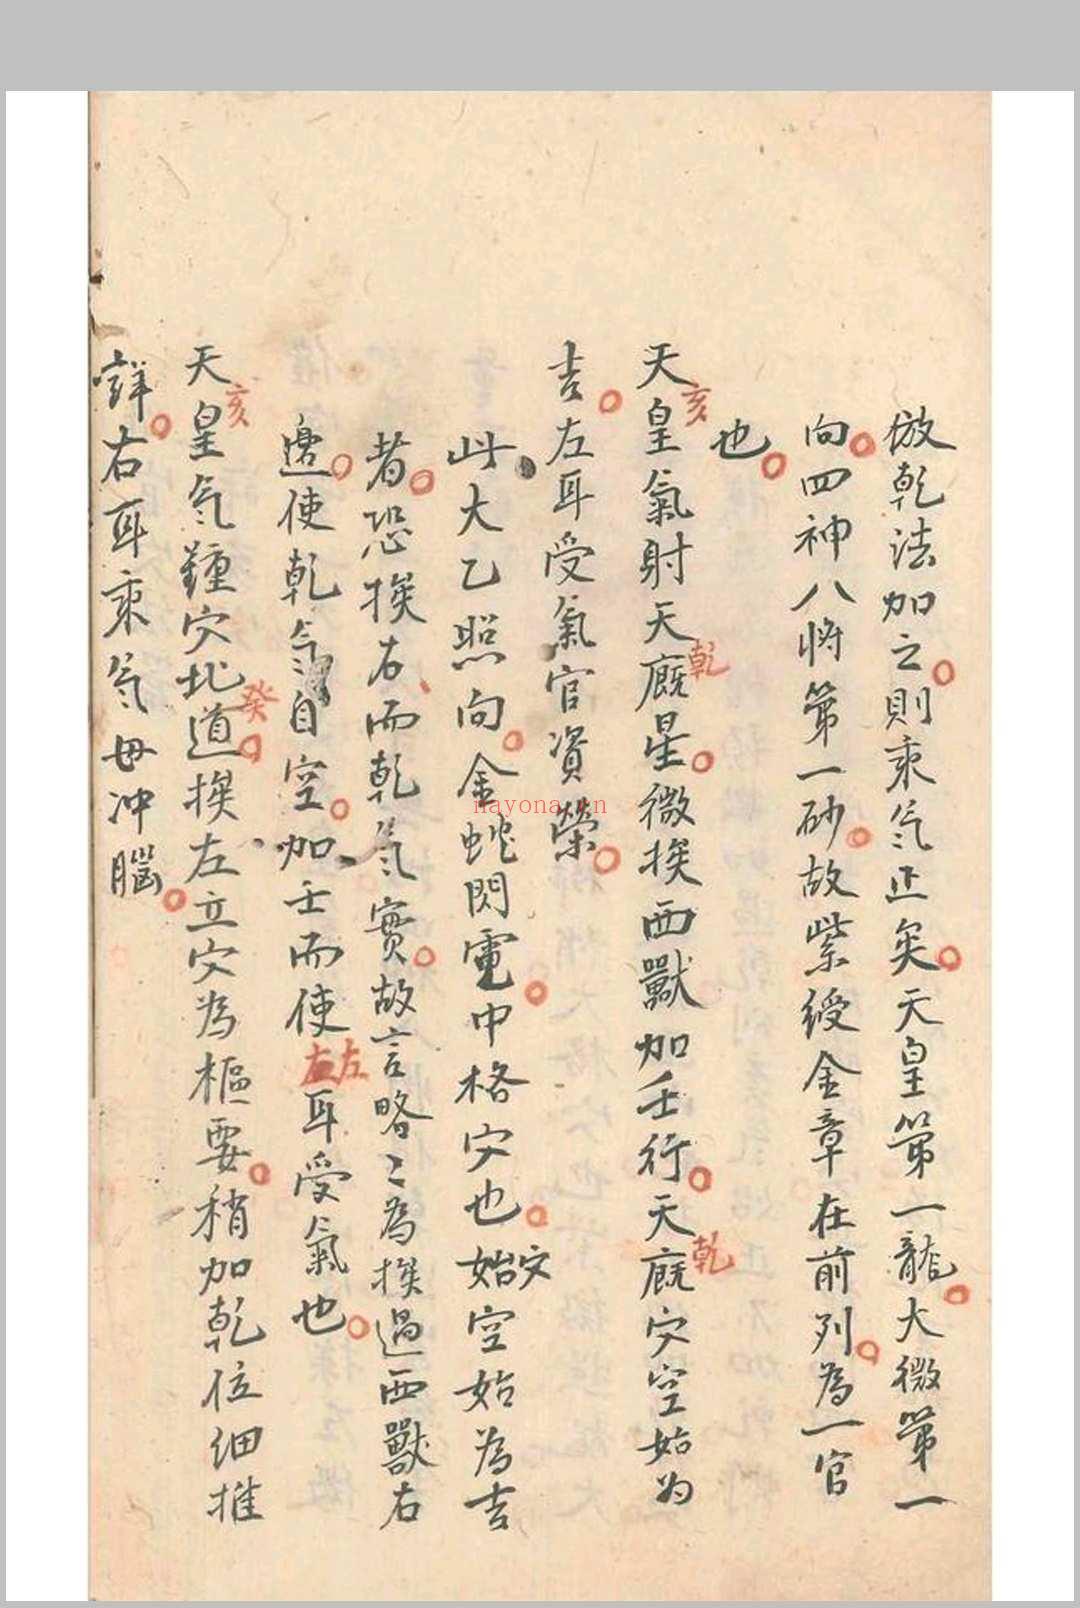 倣乾法加之則乘气正矣天皇第一龍大微第一
向四神八將第一砂故紫綬金章在前列為一官
也
天皇氣射天廐星微挨西獸加壬行天廐穴空始为
亥
乾
乾
吉左耳受氣官資榮
此大乙照向金蛇閃電中格穴也始穴空始為吉
者恐挨右而乾气實故言略〻為挨過西獸右
邊使乾气自空加壬而使左耳受氣也
左
天皇气鍾穴北道挨左立穴為樞要稍加乾位細推
亥
癸
詳右耳乘气毋冲腦
nayona.cn